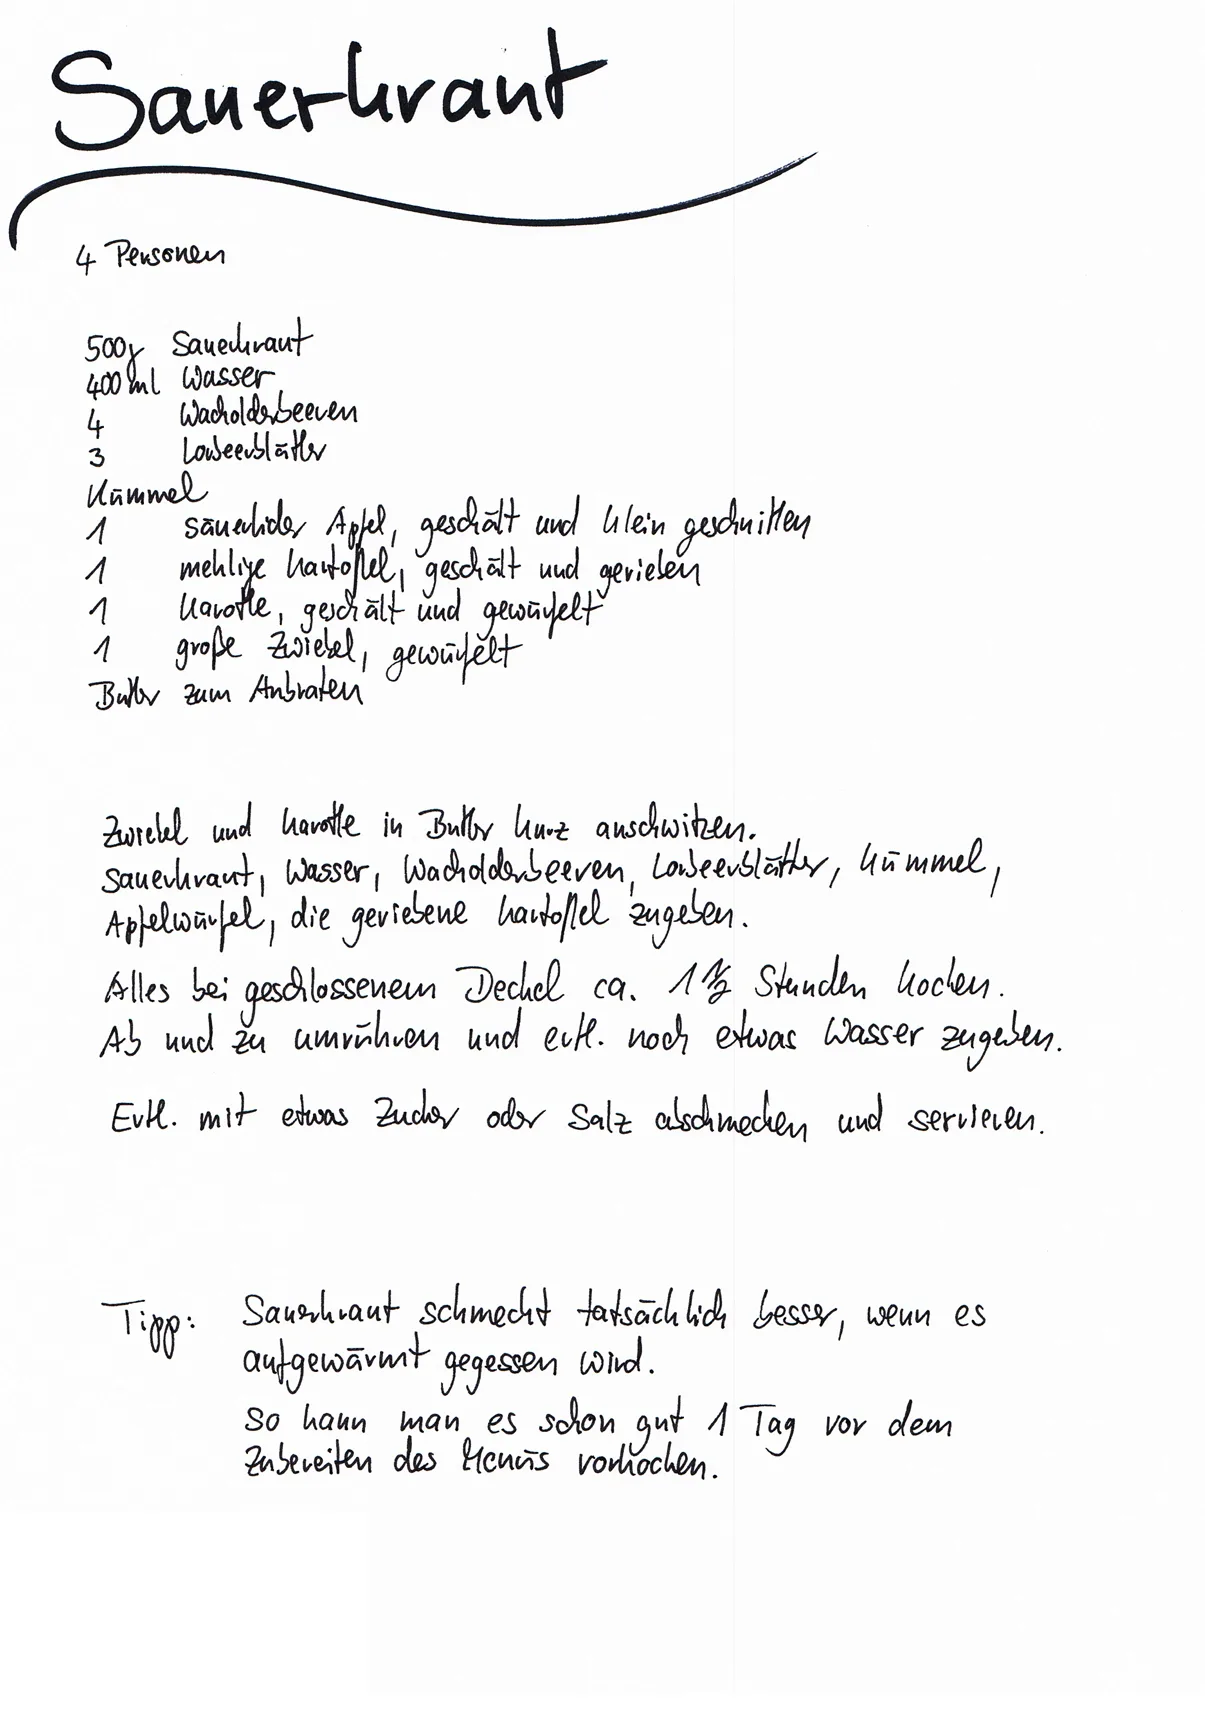 Sauerkraut
4 Personen
500g Sauerkraut
400 ml Wasser
4 Wacholderbeeren
3 Lorbeerblätter
Kümmel
1 säuerlicher Apfel, geschält und klein geschnitten
1 mehlige Kartoffel, geschält und gerieben
1 Karotte, geschält und gewürfelt
1 große Zwiebel, gewürfelt
Butter zum Anbraten
Zwiebel und Karotte in Butter kurz anschwitzen.
Sauerkraut, Wasser, Wacholderbeeren, Lorbeerblätter, Kümmel,
Apfelwürfel, die geriebene Kartoffel zugeben.
Alles bei geschlossenem Deckel ca. 1 1/2 Stunden kochen.
Ab und zu umrühren und evtl. noch etwas Wasser zugeben.
Evtl. mit etwas Zucker oder Salz abschmecken und servieren.
Tipp: Sauerkraut schmeckt tatsächlich besser, wenn es
aufgewärmt gegessen wird.
So kann man es schon gut 1 Tag vor dem
Zubereiten des Menüs vorkochen.